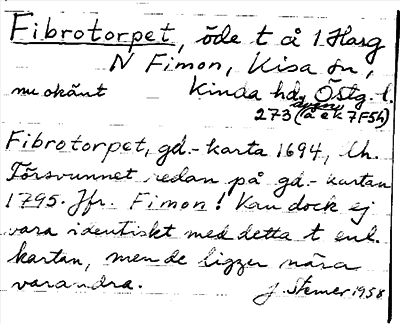 Fibrotorpet, öde t å 1 Harg
N Fimon, Kisa sn,
nu okänt Kinda hd, Östg. l.
273 (ä ek 7F5h)
Fibrotorpet, gd.-karta 1694, Uh.
Försvunnet redan på gd.-kartan
1795. Jfr. Fimon! Kan dock ej
vara identiskt med detta t enl.
kartan, men de ligger nära
varandra. J. Stemer 1958